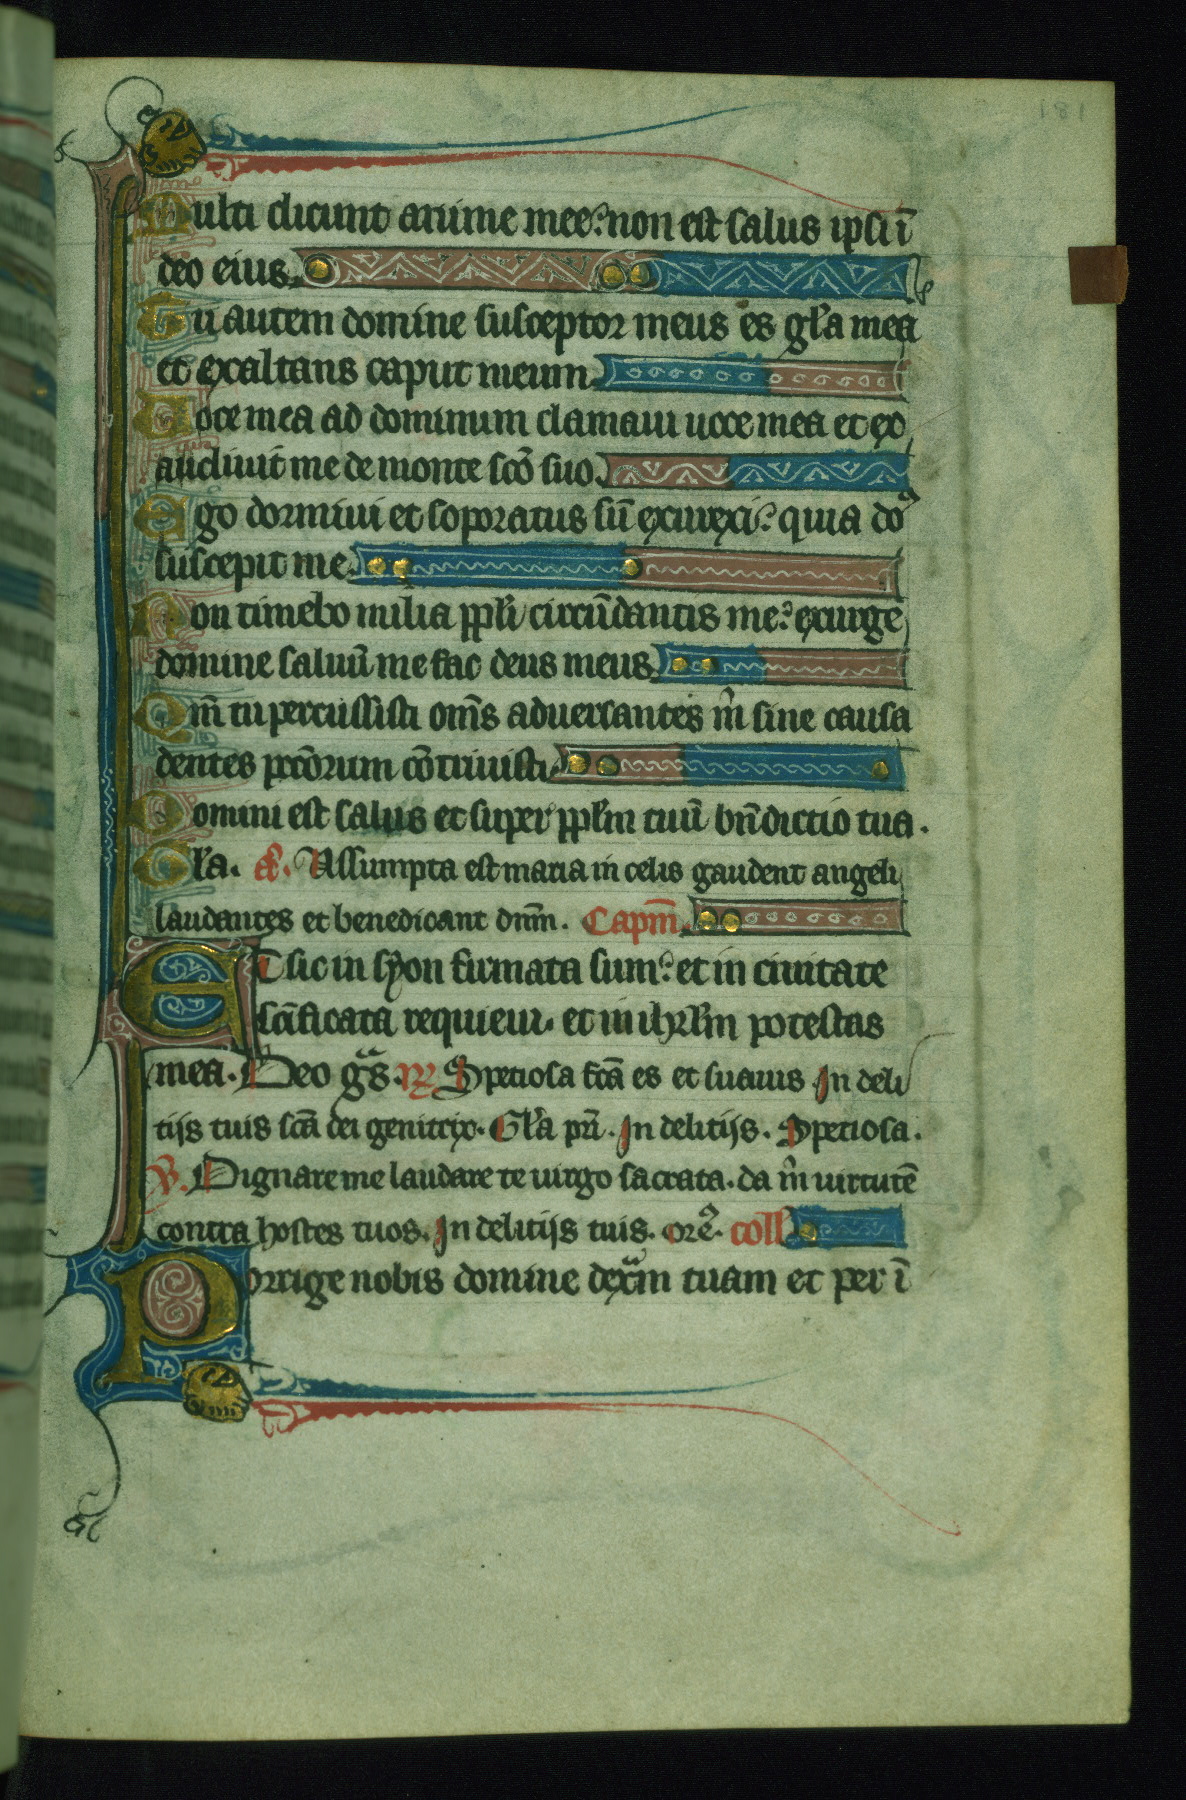 181
Multi dicunt anime mee: non est salus ipsi ī
deo eius.
Tu autem domine susceptor meus es gl̄a mea
et exaltans caput meum.
Uoce mea ad dominum clamaui uoce mea et ex
audiuit me de monte sc̄o suo.
Ego dormiui et soporatus sū exurexi: quia do᷒
suscepit me.
Non timebo milia pp̄li circūdantis me: exurge
domine saluū me fac deus meus.
Qm̄ tu percussisti om̄s aduersantes m̄ sine causa
dentes pc̄c̄orum cōtriuisti.
Domini est salus et super pp̄lm tuū bn̄dictio tua.
Gl̄a. a᷒. Assumpta est maria in celis gaudent angeli
laudantes et benedicant dn̄m. Capm̄.
ET sic in syon firmata sum: et in ciuitate
sc̄ificata requieui. et in ihrl̄m potestas
mea. Deo gᷓs. R᷒ Speciosa fc̄a es et suauis In deli
tijs tuis sc̄a dei genitrix. Gl̄a pr̄i. In delitijs. Speciosa.
V. Dignare me laudare te uirgo sacrata. da m̄ uirtutē
contra hostes tuos. In delitijs tuis. orē. coll
Porrige nobis domine dexᷓm tuam et per ī